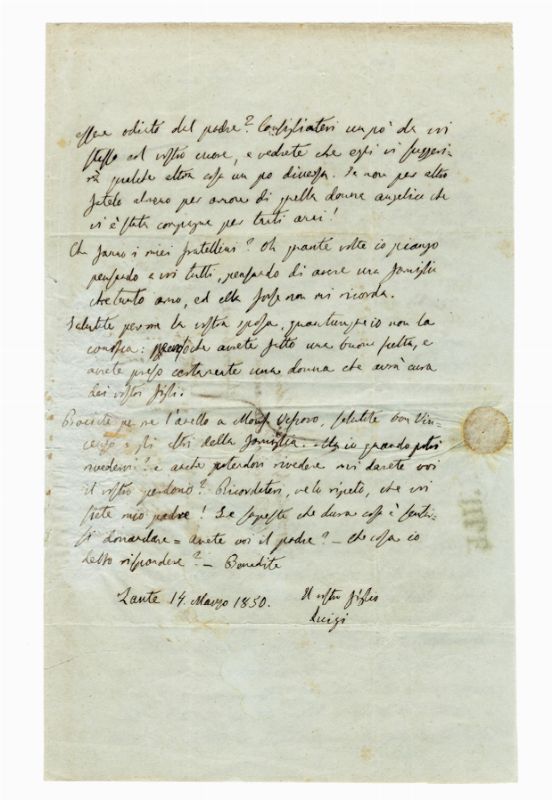 essere odiato dal padre? Consigliatevi un pò da voi
stesso col vostro cuore, e vedrete che egli vi suggeri-
rà qualche altra cosa un po diversa. Se non per altro
fatelo almeno per amore di quella donna angelica che
vi è stata compagna per tanti anni!
Che fanno i miei fratellini? Oh quante volte io piango
pensando a voi tutti, pensando di avere una famiglia
che tanto amo, ed ella forse non mi ricorda.
Salutate per me la vostra sposa, quantunque io non la
conosca: che avete fatto una buona scelta, e
avete preso certamente una donna che avrà cura
dei vostri figli.
Baciate per me l'anello a Monsr Vescovo, salutate Don Vin-
cenzo e gli altri della famiglia. Ma io quando potrò
rivedervi? e anche potendovi rivedere mi darete voi
il vostro perdono? Ricordatevi, ve lo ripeto, che voi
siete mio padre! Se sapeste che dura cosa è senti-
si domandare = avete voi il padre? — che cosa io
debbo rispondere? — Benedite
Zante 14. Marzo 1850. Il vostro figlio
Luigi